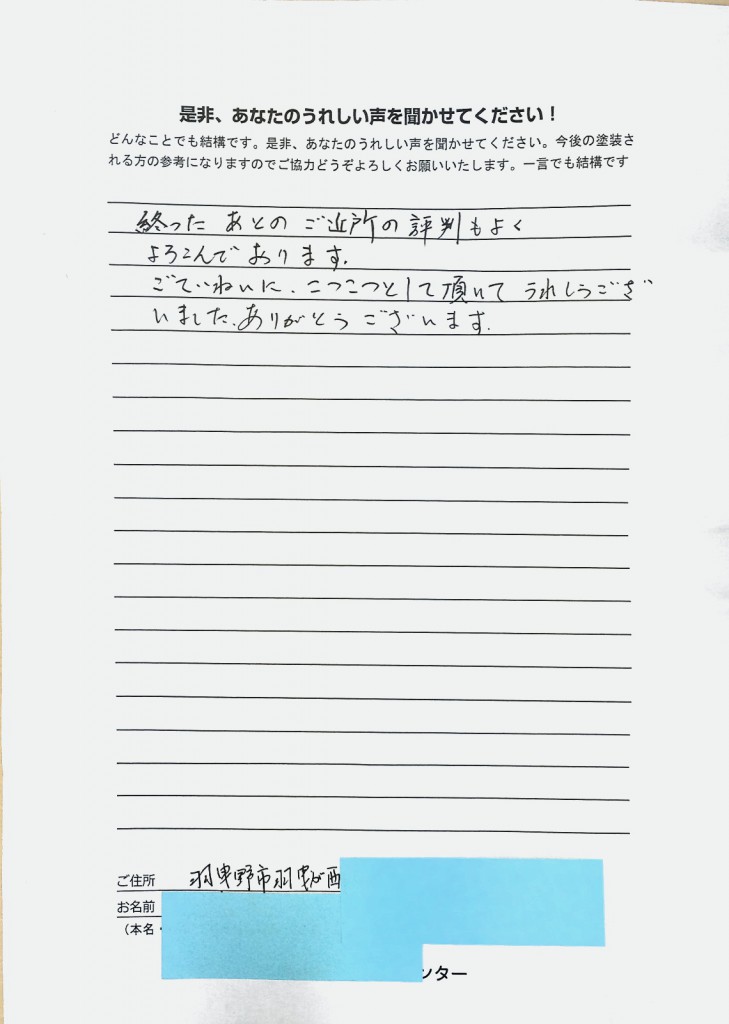 是非、あなたのうれしい声を聞かせてください！
どんなことでも結構です。是非、あなたのうれしい声を聞かせてください。今後の塗装さ
れる方の参考になりますのでご協力どうぞよろしくお願いいたします。一言でも結構です
終った あとの ご近所の評判もよく
よろこんであります.
ごていねいに、こつこつとして頂いて うれしうござ
いました、ありがとう ございます.
ご住所 羽曳野市羽曳が西
お名前
（本名・
ンター